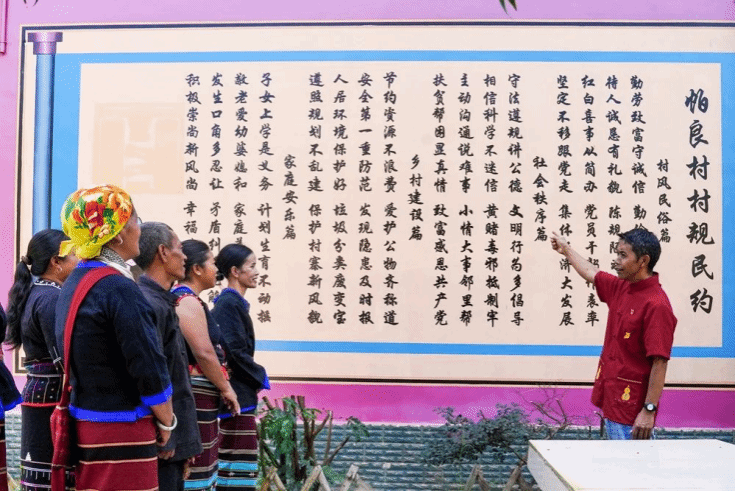 帕良村村规民约
村风民俗篇
勤劳致富守诚信 勤
待人诚恳有礼貌 陈规陋
红白喜事从简办 党员干 表率
坚定不移跟党走 集体 济大发展
社会秩序篇
守法遵规讲公德 文明行为多倡导
相信科学不迷信 黄赌毒邪抵制牢
主动沟通说难事 小情大事邻里帮
扶贫帮困显真情 致富感恩共产党
乡村建设篇
节约资源不浪费 爱护公物齐称道
安全第一重防范 发现隐患及时报
人居环境保护好 垃圾分类废变宝
遵照规划不乱建 保护村寨新风貌
家庭安乐篇
子女上学是义务 计划生育不动摇
敬老爱幼婆媳和 家庭
发生口角多忍让 矛盾纠
积极崇尚新风尚 幸福